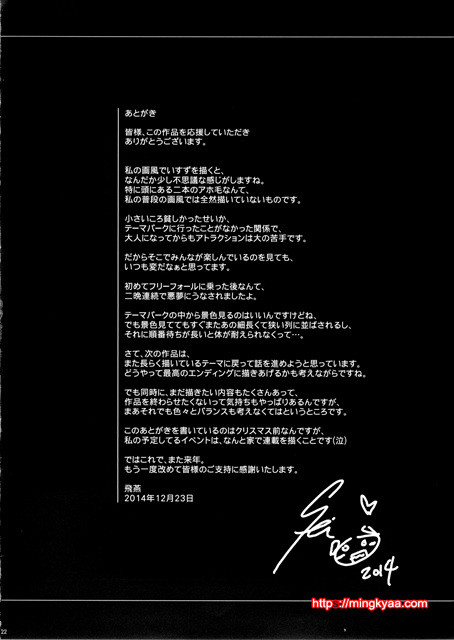 あとがき
皆様、この作品を応援していただき
ありがとうございます。
私の画風でいすずを描くと、
なんだか少し不思議な感じがしますね。
特に頭にある二本のアホ毛なんて、
私の普段の画風では全然描いていないものです。
小さいころ貧しかったせいか、
テーマパークに行ったことがなかった関係で、
大人になってからもアトラクションは大の苦手です。
だからそこでみんなが楽しんでいるのを見ても、
いつも変だなぁと思ってます。
初めてフリーフォールに乗った後なんて、
二晩連続で悪夢にうなされましたよ。
テーマパークの中から景色見るのはいいんですけどね、
でも景色見ててもすぐまたあの細長くて狭い列に並ばされるし、
それに順番待ちが長いと体が耐えられなくって…。
さて、次の作品は、
また長らく描いているテーマに戻って話を進めようと思っています。
どうやって最高のエンディングに描きあげるかも考えながらですね。
でも同時に、まだ描きたい内容もたくさんあって、
作品を終わらせたくないって気持ちもやっぱりあるんですが、
まあそれでも色々とバランスも考えなくてはというところです。
このあとがきを書いているのはクリスマス前なんですが、
私の予定してるイベントは、なんと家で連載を描くことです(泣)
ではこれで、また来年。
もう一度改めて皆様のご支持に感謝いたします。
飛燕
2014年12月23日
2014
http://mingkyaa.com
22